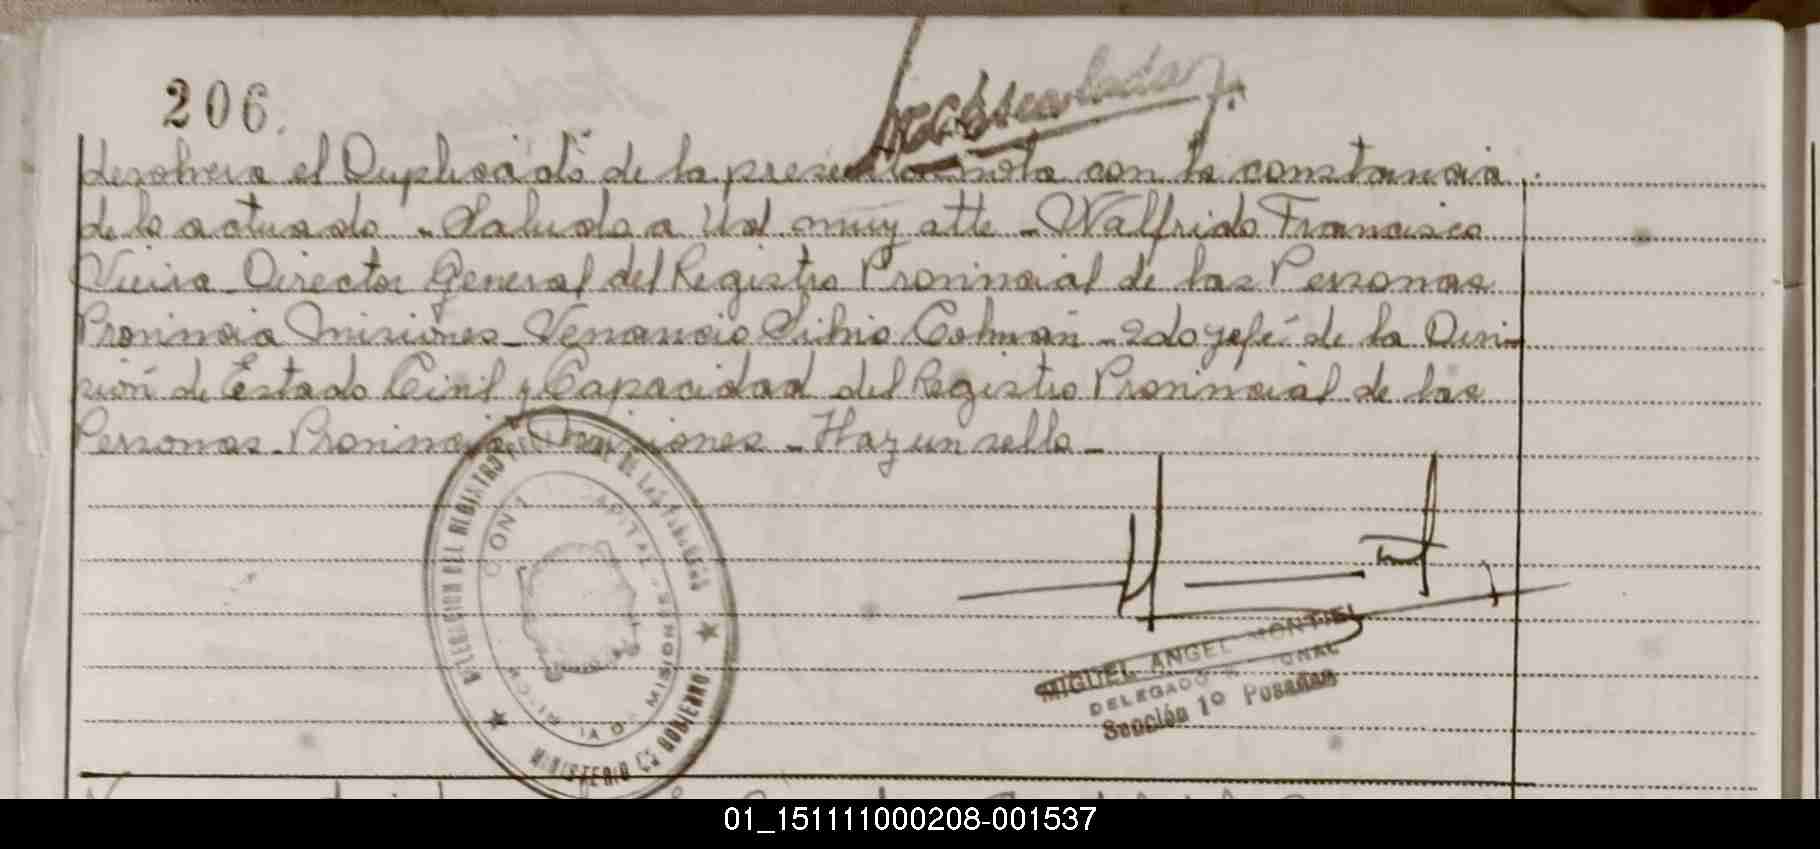 206.
devolvera el Duplicado de la presente nota con la constancia
de lo actuado - Saluda a Ud muy atte - Walfrido Francisco
Vieira - Director General del Registro Provincial de las Personas
Provincia Misiones - Venancio Silvio Colman - 2do jefe de la Divi-
sión de Estado Civil y Capacidad del Registro Provincial de las
Personas - Provincia Misiones - Hay un sello -
MIGUEL ANGEL MONTIEL
DELEGADO
Sección 1º Posadas
MINISTERIO DE GOBIERNO
MISIONES
01_151111000208-001537